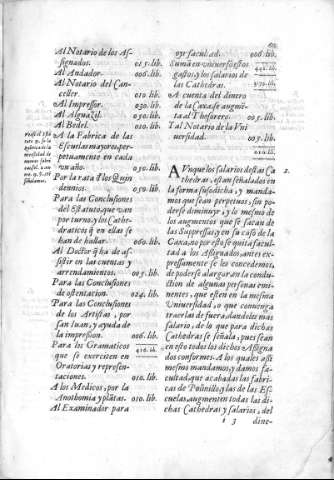 Al Notario de los As-
signados. 015. lib.
Al Andador. 006. lib.
Al Notario del Can-
celler. 010. lib.
Al Impressor. 030. lib.
Al Alguazil. 050. lib.
Al Bedel. 010. lib.
A la Fabrica de las
Escuelas mayores, per-
petuamente en cada
vn año. 050. lib.
Por la rata de los Quin
denios. 050. lib.
Para las Conclusiones
del Estatuto, que van
por turno, y los Cathe-
draticos q̃ en ellas se
han de hallar. 060. lib.
Al Doctor q̃ ha de as-
sistir en las cuentas y
arrendamientos. 005. lib.
Para las Conclusiones
de ostentacion. 024. lib.
Para las Conclusiones
de los Artistas, por
san Iuan, y ayuda de
la impression. 006. lib.
Para los Gramaticos
que se exercitan en
Oratorias y represen-
taciones. 010. lib.
A los Medicos, por la
Anothomia y plãtas. 010. lib.
Al Examinador para
oyr facultad. 006. lib.
Sumã en vniuerso estos
gastos, y los salarios de
las Cathedras.
A cuenta del dinero
de la Caxa, se augmẽ
ta al Thesorero. 005. lib.
Tal Notario de la Vni
uersidad. 005. lib.
AVnque los salarios destas Ca
thedras, estan señalados en
la forma susodicha, y manda-
mos que sean perpetuos, sin po-
derse diminuyr, y lo mesmo de
los augmentos que se sacan de
las Suppressas, y en su caso de la
Caxa, no por esto se quita facul-
tad a los Assignados, antes ex-
pressamente se los concedemos,
de poderse alargar en la condu-
ction de algunas personas emi-
nentes, que esten en la mesma
Vniuersidad, o que conuenga
traerlas de fuera, dandoles mas
salario, de lo que para dichas
Cathedras se señala, pues sean
en esto todos los dichos Assigna
dos conformes. A los quales assi
mesmo mandamos, y damos fa-
cultad, que acabadas las fabri-
cas de Polinillo, y las de las Es-
cuelas, augmenten todas las di-
chas Cathedras y salarios, del
i 3 dine-
2.